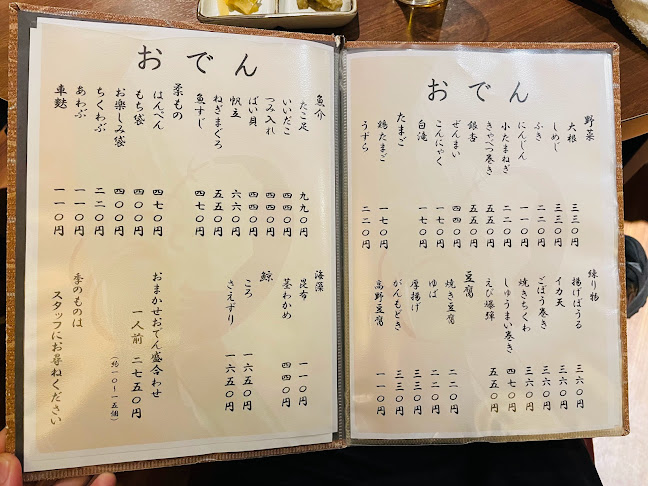 おでん
野菜
大根 三三〇円
しめじ 三三〇円
ふき 二二〇円
にんじん 一一〇円
小たまねぎ 二二〇円
きゃべつ巻き 五五〇円
銀杏 五五〇円
ぜんまい 四四〇円
こんにゃく 一七〇円
白滝 一七〇円
たまご
鶏たまご 一七〇円
うずら 二二〇円
練り物
揚げぼうる 三六〇円
イカ天 三六〇円
ごぼう巻き 三六〇円
焼きちくわ 三六〇円
しゅうまい巻き 四七〇円
えび爆弾 五五〇円
豆腐
焼き豆腐 二二〇円
ゆば 二二〇円
厚揚げ 三三〇円
がんもどき 三三〇円
高野豆腐 一一〇円
おでん
魚介
たこ足 九九〇円
いいだこ 四四〇円
つみ入れ 四四〇円
ばい貝 四四〇円
帆立 六六〇円
ねぎまぐろ 五五〇円
魚すじ 四七〇円
柔もの
はんぺん 四七〇円
もち袋 四〇〇円
お楽しみ袋 四〇〇円
ちくわぶ 二二〇円
あわぶ 一一〇円
車麩 一一〇円
海藻
昆布 一一〇円
茎わかめ 四四〇円
鯨
ころ 一六五〇円
さえずり 一六五〇円
おまかせおでん盛合わせ
一人前 二七五〇円
（約一〇〜一五個）
季のものは
スタッフにお尋ねください